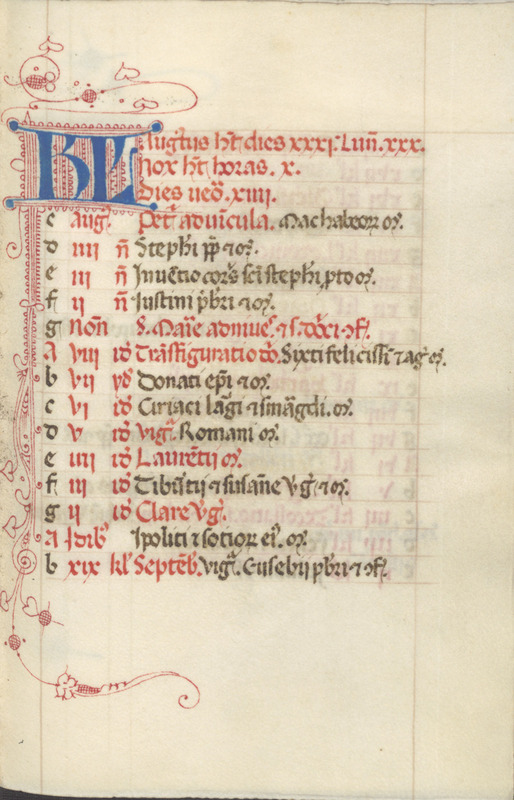 KL Augustus ht dies xxxi. Lun. xxx.
Nox ht horas. x.
Dies vero. xiiii.
c aug. Pet advincula. Machabeor or.
d iiii n Stephi pp 7 or.
e iii n Inventio corp sci stephi pto or.
f ii n Iustini pbri 7 or.
g non S. Marie ad nives 7 s. dnici 9f.
A viii id Transfiguratio do. Sixti felicissi 7 ag. or.
b vii yd Donati epi 7 or.
c vi id Ciriaci largi 7 smaragdi. or.
d v id vig. Romani or.
e iiii id Laurentii or.
f iii id Tiburtii 7 susane vg. 7 or.
g ii id Clare vg.
A Idib Ipoliti 7 socior ei. or.
b xix kl Septeb. vig. Eusebii pbri 7 9f.